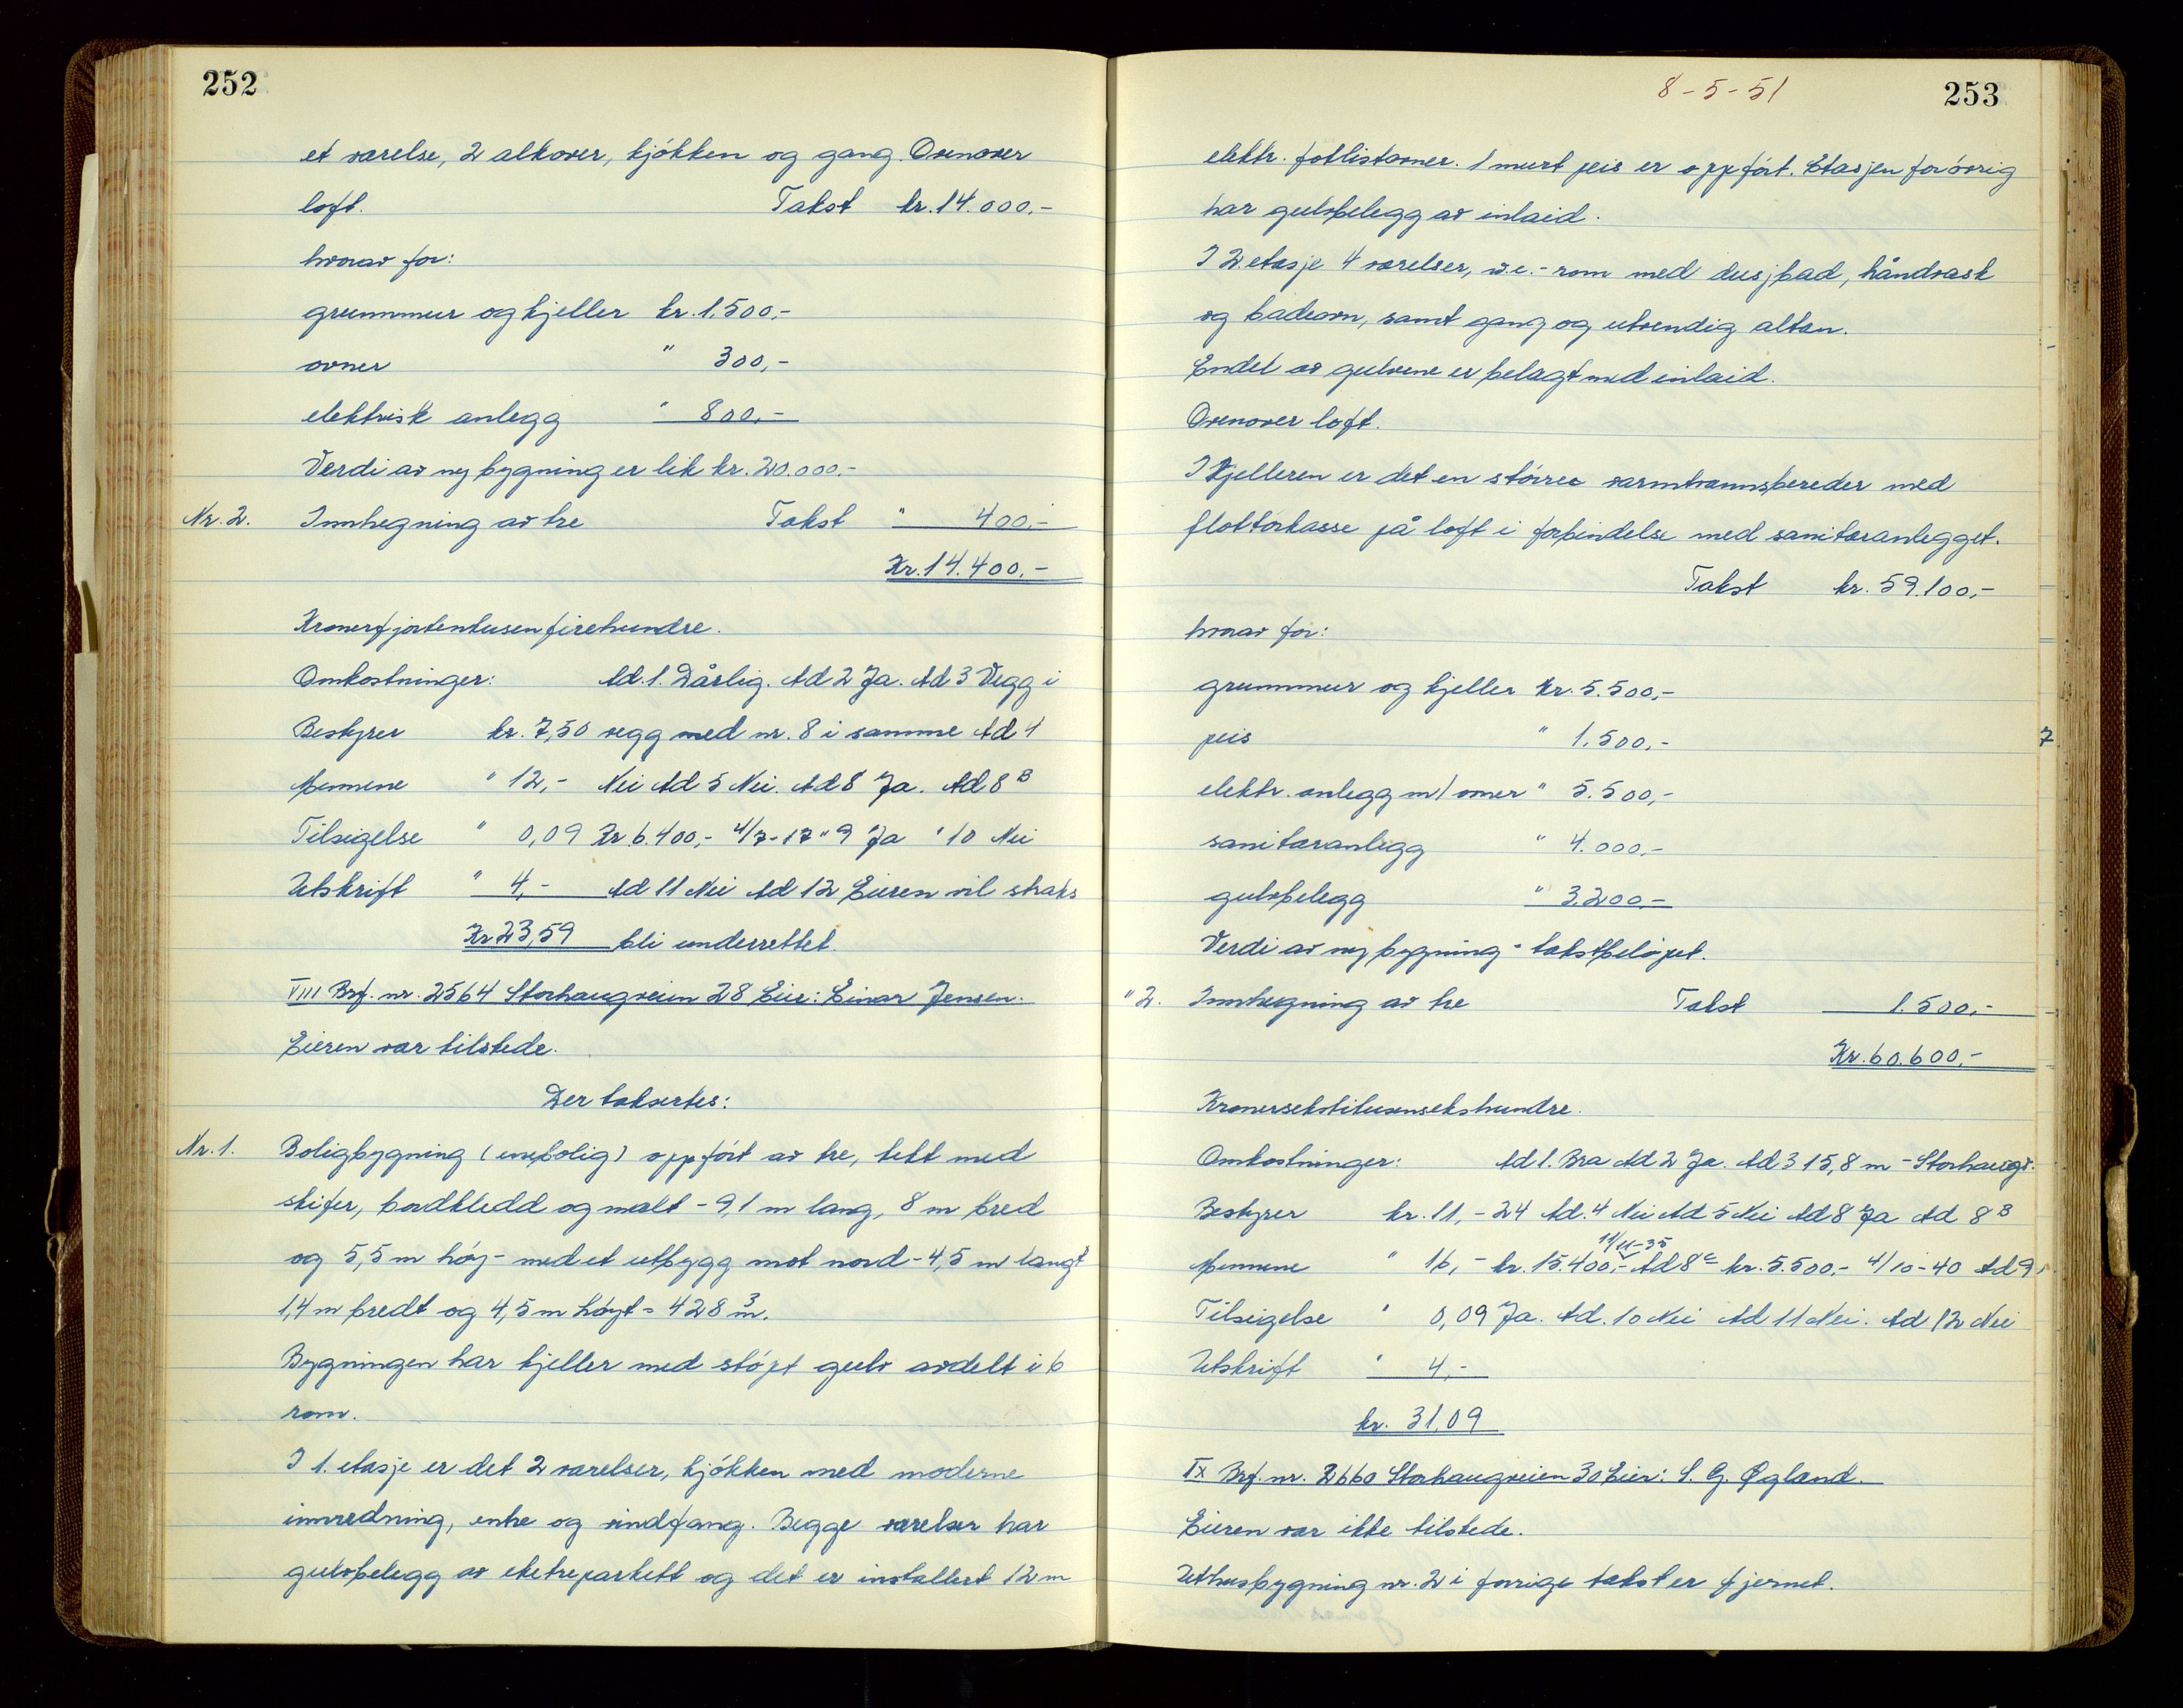 252
et værelse, 2 alkover, kjökken og gang. Ovenover
loft. Takst kr. 14.000.-
hvorav for:
grunnmur og kjeller kr. 1.500,-
ovner " 300,-
elektrisk anlegg " 800,-
Verdi av ny bygning er lik kr. 20.000.-
Nr. 2. Innhegning av tre Takst " 400,-
Kr. 14.400,-
Kronerfjortentusenfirehundre.
Omkostninger: Ad. 1. Dårlig. Ad 2 Ja. Ad 3 Vegg i
Bestyrer kr. 7,50 vegg med nr. 8 i samme Ad 4
Mennene " 12,- Nei Ad 5 Nei. Ad 8 Ja. Ad 8 B
Tilsigelse " 0,09 Kr 6.400,- 4/7-17 " 9 Ja " 10 Nei
Utskrift " 4,- Ad 11 Nei Ad 12 Eieren vil straks
Kr 23,59 bli underrettet.
VIII Brf. nr. 2564 Storhaugveien 28 Eier: Einar Jensen.
Eieren var tilstede.
Der taksertes:
Nr. 1. Boligbygning (enebolig) oppfört av tre, tekt med
skifer, bordkledd og malt - 9,1 m lang, 8 m bred
og 5,5 m høy - med et utbygg mot nord - 4,5 m langt
1,4 m bredt og 4,5 m høyt = 428 m³.
Bygningen har kjeller med stöpt gulv avdelt i 6
rom.
I 1. etasje er det 2 værelser, kjökken med moderne
innredning, entre og vindfang. Begge værelser har
gulvbelegg av eketreparkett og det er installert 12 m
8-5-51
253
elektr. fotlistovner. 1 murt peis er oppfört. Etasjen forövrig
har gulvbelegg av inlaid.
I 2. etasje 4 værelser, w.c.-rom med dusjbad, håndvask
og badeovn, samt gang og utvendig altan.
Endel av gulvene er belagt med inlaid.
Ovenover loft.
I kjelleren er det en större varmtvannsbereder med
flottörkasse på loft i forbindelse med sanitæranlegget.
Takst kr. 59.100,-
hvorav for:
grunnmur og kjeller kr. 5.500,-
peis " 1.500,-
elektr. anlegg m/ovner " 5.500,-
sanitæranlegg " 4.000,-
gulvbelegg " 3.200,-
Verdi av ny bygning = takstbelöpet.
" 2. Innhegning av tre Takst 1.500,-
Kr. 60.600,-
Kronersekstitusensekshundre.
Omkostninger: Ad 1. Bra Ad 2 Ja. Ad 3 15,8 m - Storhaugv.
Bestyrer kr. 11,- 24 Ad. 4 Nei Ad 5 Nei Ad 8 Ja Ad 8 B
11/11-35
Mennene " 16,- kr. 15.400,- Ad 8 c kr. 5.500,- 4/10-40 Ad 9
Tilsigelse " 0,09 Ja. Ad. 10 Nei Ad 11 Nei. Ad 12 Nei
Utskrift " 4,-
kr. 31,09
IX Brf. nr. 2660 Storhaugveien 30 Eier: S. G. Øgland.
Eieren var ikke tilstede.
Uthusbygning nr. 2 i forrige takst er fjernet.
7